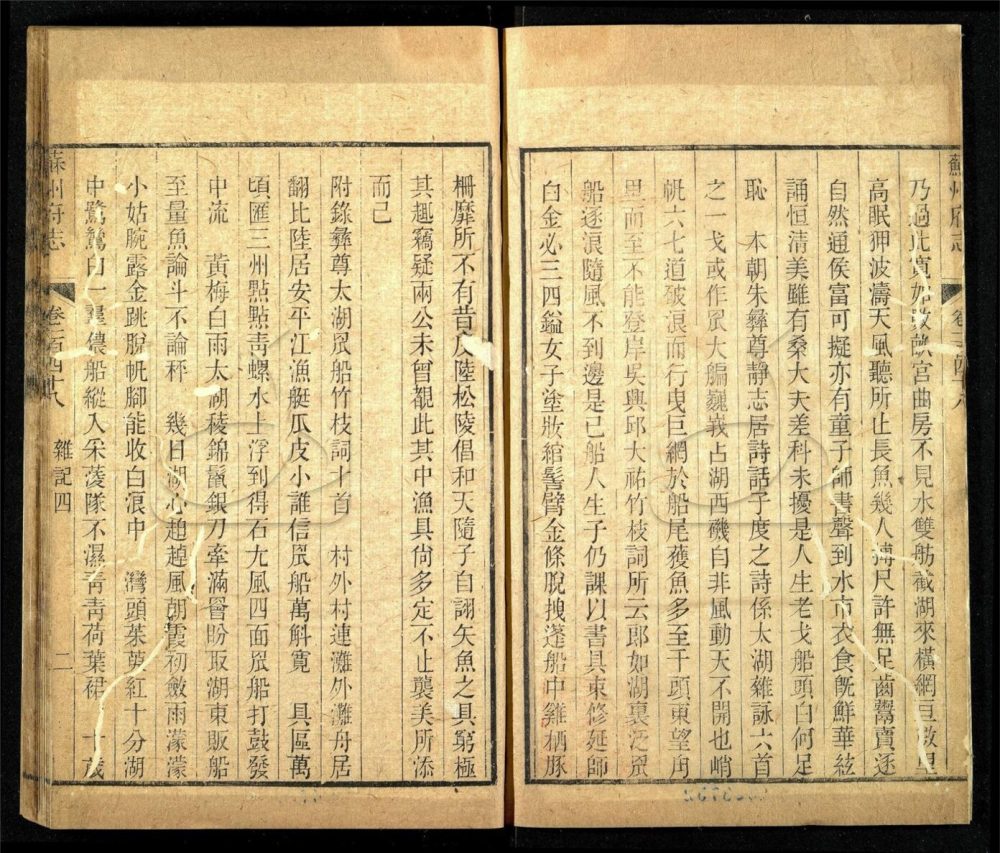 蘇州府志
卷一百四十八
乃過此寬如數畝宮曲房不見水雙舫截湖來橫網亘數里
高眠狎波濤天風聽所止長魚幾人摶尺許無足齒鬻賣逐
自然通侯富可擬亦有童子師書聲到水市衣食旣鮮華絃
誦恒清美雖有桑大夫差科未擾是人生老戈船頭白何足
恥 本朝朱彝尊靜志居詩話子度之詩係太湖雜詠六首
之一戈或作𦊅大艑巍峩占湖西磯自非風動天不開也峭
帆六七道破浪而行曳巨網於船尾獲魚多至千頭東望角
里而至不能登岸吳興邱大祐竹枝詞所云郎如湖裏泛𦊅
船逐浪隨風不到邊是已船人生子仍課以書具束修延師
白金必三四鎰女子塗妝綰髻臂金條脫拽蓬船中雞栖豚
柵靡所不有昔皮陸松陵倡和天隨子自詡矢魚之具窮極
其趣竊疑兩公未曾覩此其中漁具尙多定不止襲美所添
而已
附錄彝尊太湖𦊅船竹枝詞十首 村外村連灘外灘舟居
翻比陸居安平江漁艇瓜皮小誰信𦊅船萬斛寬 具區萬
頃匯三州點點靑螺水上浮到得石尤風四面𦊅船打鼓發
中流 黃梅白雨太湖稜錦鬣銀刀牽滿罾盼取湖東販船
至量魚論斗不論秤 幾日湖心趠趠風朝霞初斂雨濛濛
小姑腕露金跳脫帆腳能收白浪中 灣頭茱萸紅十分湖
中鷺鷥白一羣儂船縱入采菱隊不濕靑靑荷葉裙 十歲
蘇州府志
卷一百四十八
雜記四
二